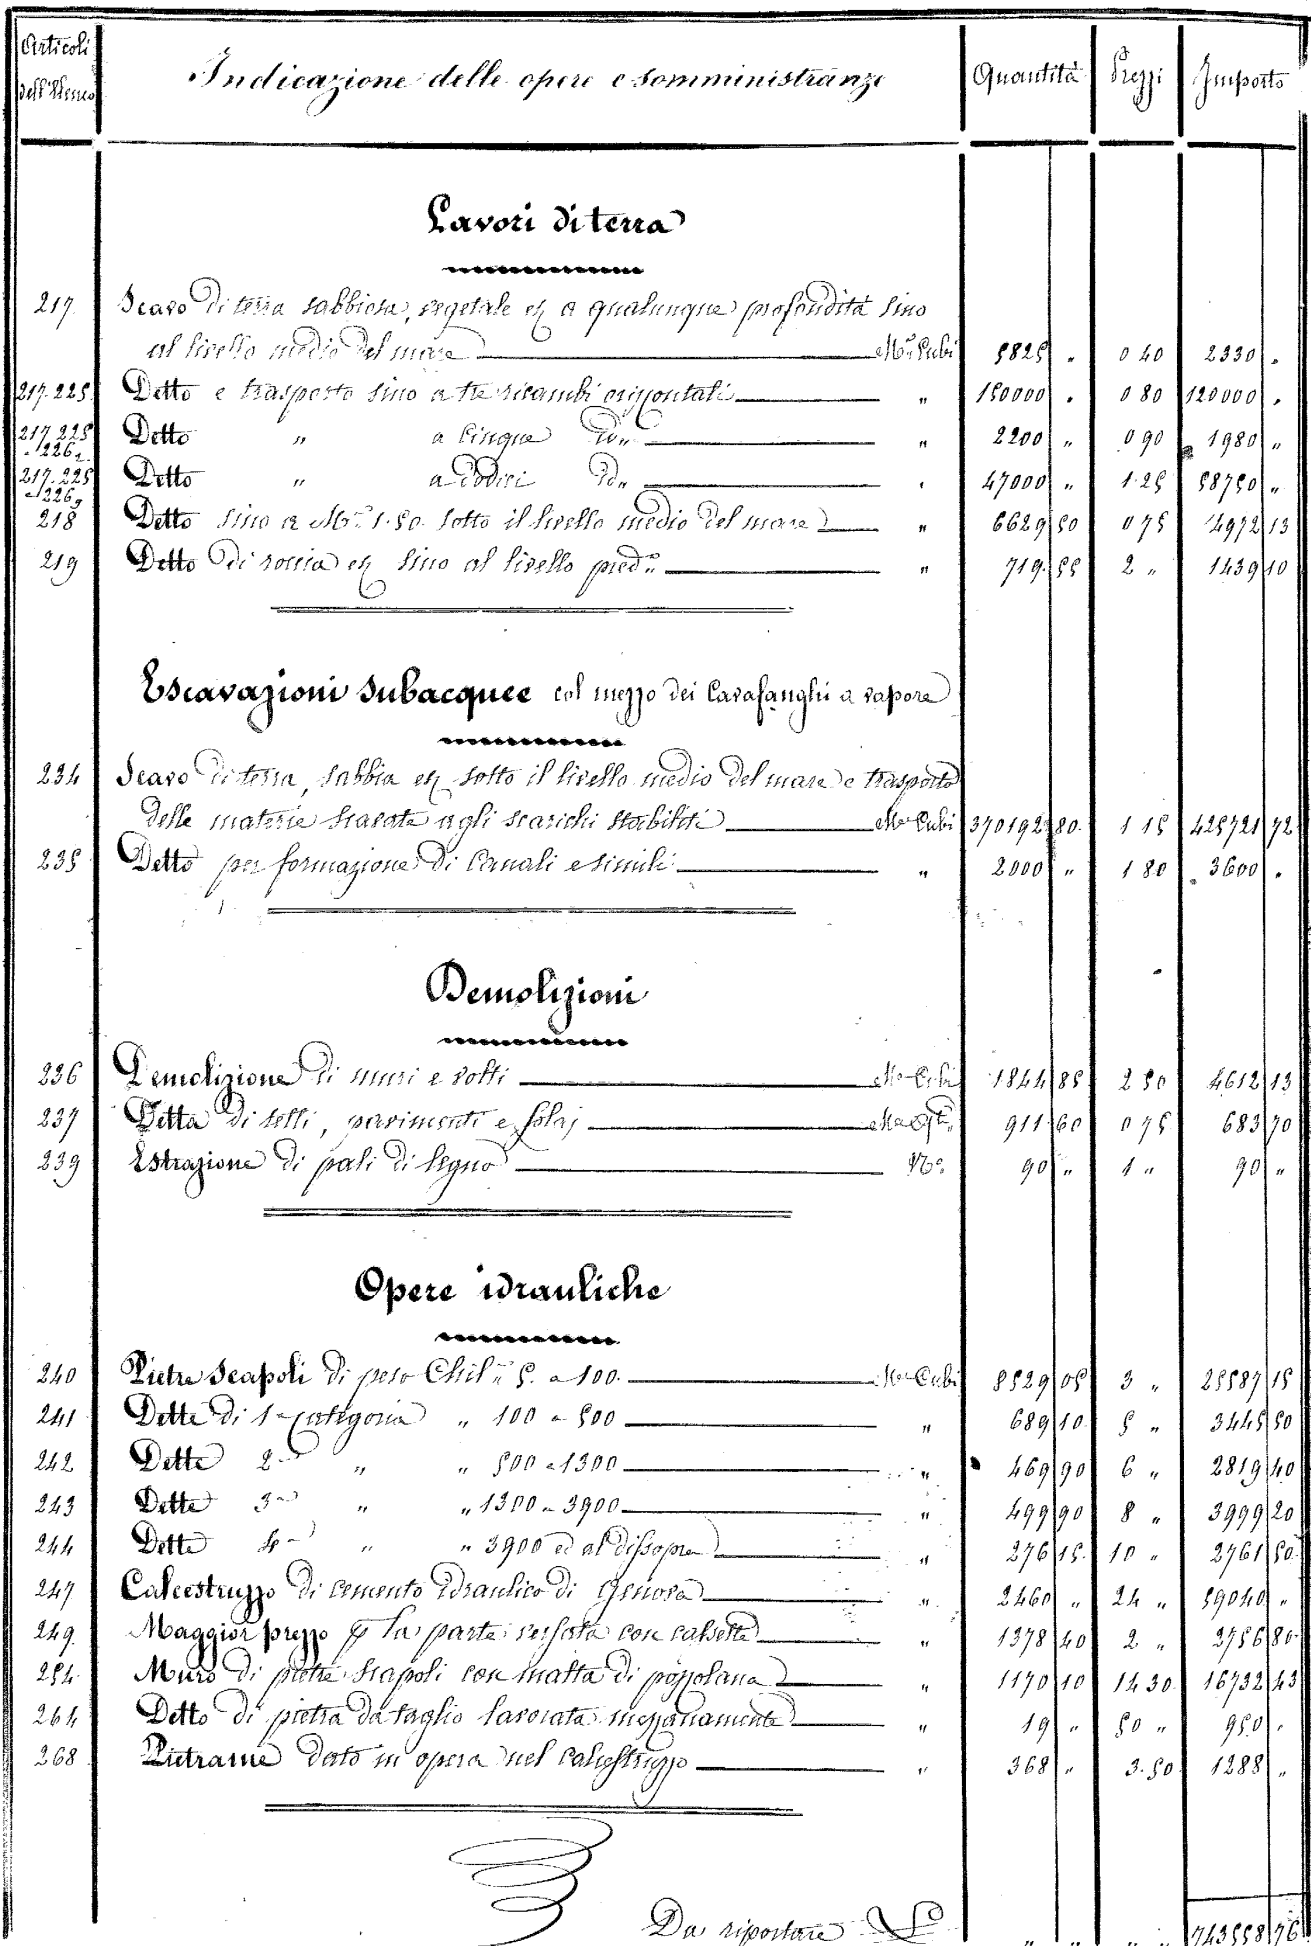 Articoli dell'Elenco | Indicazione delle opere e somministranze | Quantità | Prezzi | Importo
Lavori di terra
217. Scavo di terra sabbiosa, vegetale &c a qualunque profondità sino
al livello medio del mare Mri Cubi 5825 " 0 40 2330 "
217.225 Detto e trasporto sino a tre ricambi orizzontali " 150000 " 0 80 120000 "
217.225 226 Detto " a cinque id. " 2200 " 0 90 1980 "
217.225 226 Detto " a dodici id. " 47000 " 1.25 58750 "
218 Detto sino a Mri 1.50 sotto il livello medio del mare " 6629 50 0 75 4972 13
219 Detto di roccia &c sino al livello pred. " 719 55 2 " 1439 10
Escavazioni subacquee col mezzo dei Cavafanghi a vapore
234 Scavo di terra, sabbia &c sotto il livello medio del mare e trasporto
delle materie scavate agli scarichi stabiliti Mri Cubi 370192 80 1 15 425721 72
235 Detto per formazione di Canali e simili " 2000 " 1 80 3600 "
Demolizioni
236 Demolizione di muri e volti Mri Cubi 1844 85 2 50 4612 13
237 Detta di tetti, pavimenti e solaj Mri Qti 911 60 0 75 683 70
239 Estrazione di pali di legno No 90 " 1 " 90 "
Opere idrauliche
240 Pietre scapoli di peso Chil. 5. a 100. Mri Cubi 8529 05 3 " 25587 15
241 Dette di 1a categoria " 100 a 500 " 689 10 5 " 3445 50
242 Dette 2a " " 500 a 1300 " 469 90 6 " 2819 40
243 Dette 3a " " 1300 a 3900 " 499 90 8 " 3999 20
244 Dette 4a " " 3900 ed al dissopra " 276 15 10 " 2761 50
247 Calcestruzzo di cemento idraulico di Genova " 2460 " 24 " 59040 "
249 Maggior prezzo p la parte versata con cassette " 1378 40 2 " 2756 80
254 Muro di pietre scapoli con malta di pozzolana " 1170 10 14 30 16732 43
264 Detto di pietra da taglio lavorata mezzanamente " 19 " 50 " 950 "
268 Pietrame dato in opera nel calcestruzzo " 368 " 3.50 1288 "
Da riportare L. " " " " 743558 76